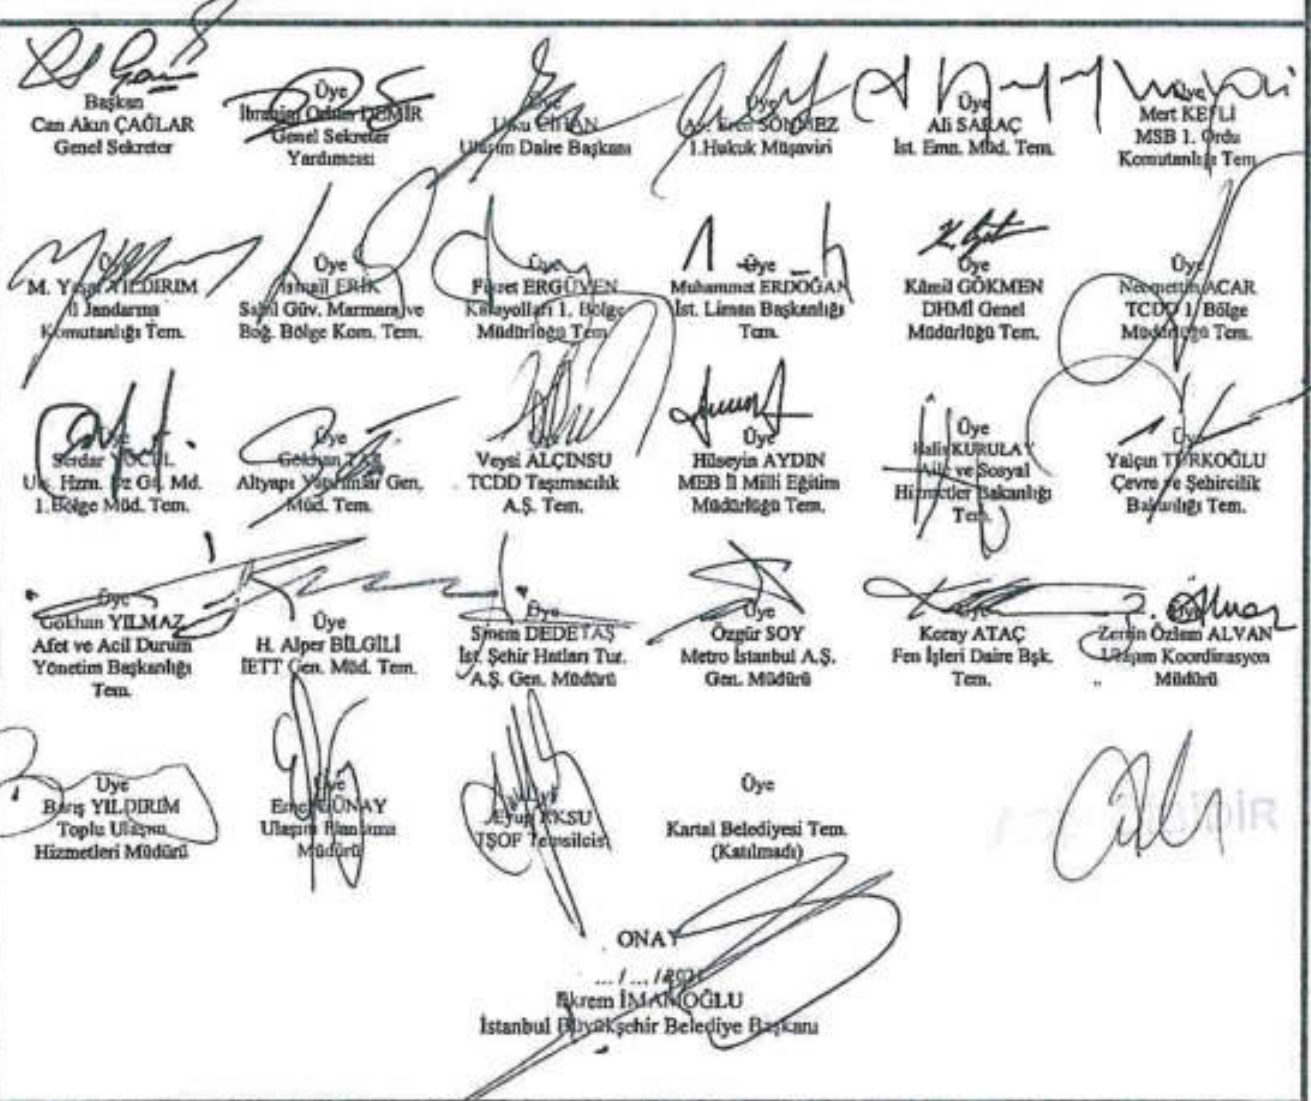 Başkan
Can Akın ÇAĞLAR
Genel Sekreter
Üye
İbrahim Orhan DEMİR
Genel Sekreter
Yardımcısı
Üye
Utku CİHAN
Ulaşım Daire Başkanı
Üye
Av. Eren SÖNMEZ
1.Hukuk Müşaviri
Üye
Ali SARAÇ
İst. Emn. Müd. Tem.
Üye
Mert KEFLİ
MSB 1. Ordu
Komutanlığı Tem.
Üye
M. Yaşar YILDIRIM
İl Jandarma
Komutanlığı Tem.
Üye
İsmail ERİK
Sahil Güv. Marmara ve
Boğ. Bölge Kom. Tem.
Üye
Fikret ERGÜVEN
Karayolları 1. Bölge
Müdürlüğü Tem.
Üye
Muhammet ERDOĞAN
İst. Liman Başkanlığı
Tem.
Üye
Kâmil GÖKMEN
DHMİ Genel
Müdürlüğü Tem.
Üye
Necmettin ACAR
TCDD 1. Bölge
Müdürlüğü Tem.
Üye
Serdar YÜCEL
Ulş. Hzm. Dz Gn. Md.
1. Bölge Müd. Tem.
Üye
Gökhan TAŞ
Altyapı Yatırımlar Gen.
Müd. Tem.
Üye
Veysi ALÇINSU
TCDD Taşımacılık
A.Ş. Tem.
Üye
Hüseyin AYDIN
MEB İl Milli Eğitim
Müdürlüğü Tem.
Üye
Halis KURULAY
Aile ve Sosyal
Hizmetler Bakanlığı
Tem.
Üye
Yalçın TÜRKOĞLU
Çevre ve Şehircilik
Bakanlığı Tem.
Üye
Gökhan YILMAZ
Afet ve Acil Durum
Yönetim Başkanlığı
Tem.
Üye
H. Alper BİLGİLİ
İETT Gen. Müd. Tem.
Üye
Sinem DEDETAŞ
İst. Şehir Hatları Tur.
A.Ş. Gen. Müdürü
Üye
Özgür SOY
Metro İstanbul A.Ş.
Gen. Müdürü
Üye
Koray ATAÇ
Fen İşleri Daire Bşk.
Tem.
Üye
Zerrin Özlem ALVAN
Ulaşım Koordinasyon
Müdürü
Üye
Barış YILDIRIM
Toplu Ulaşım
Hizmetleri Müdürü
Üye
GÜNAY
Ulaşım Planlama
Müdürü
Üye
Eyup AKSU
TŞOF Temsilcisi
Üye
Kartal Belediyesi Tem.
(Katılmadı)
ONAY
... / ... /2021
Ekrem İMAMOĞLU
İstanbul Büyükşehir Belediye Başkanı